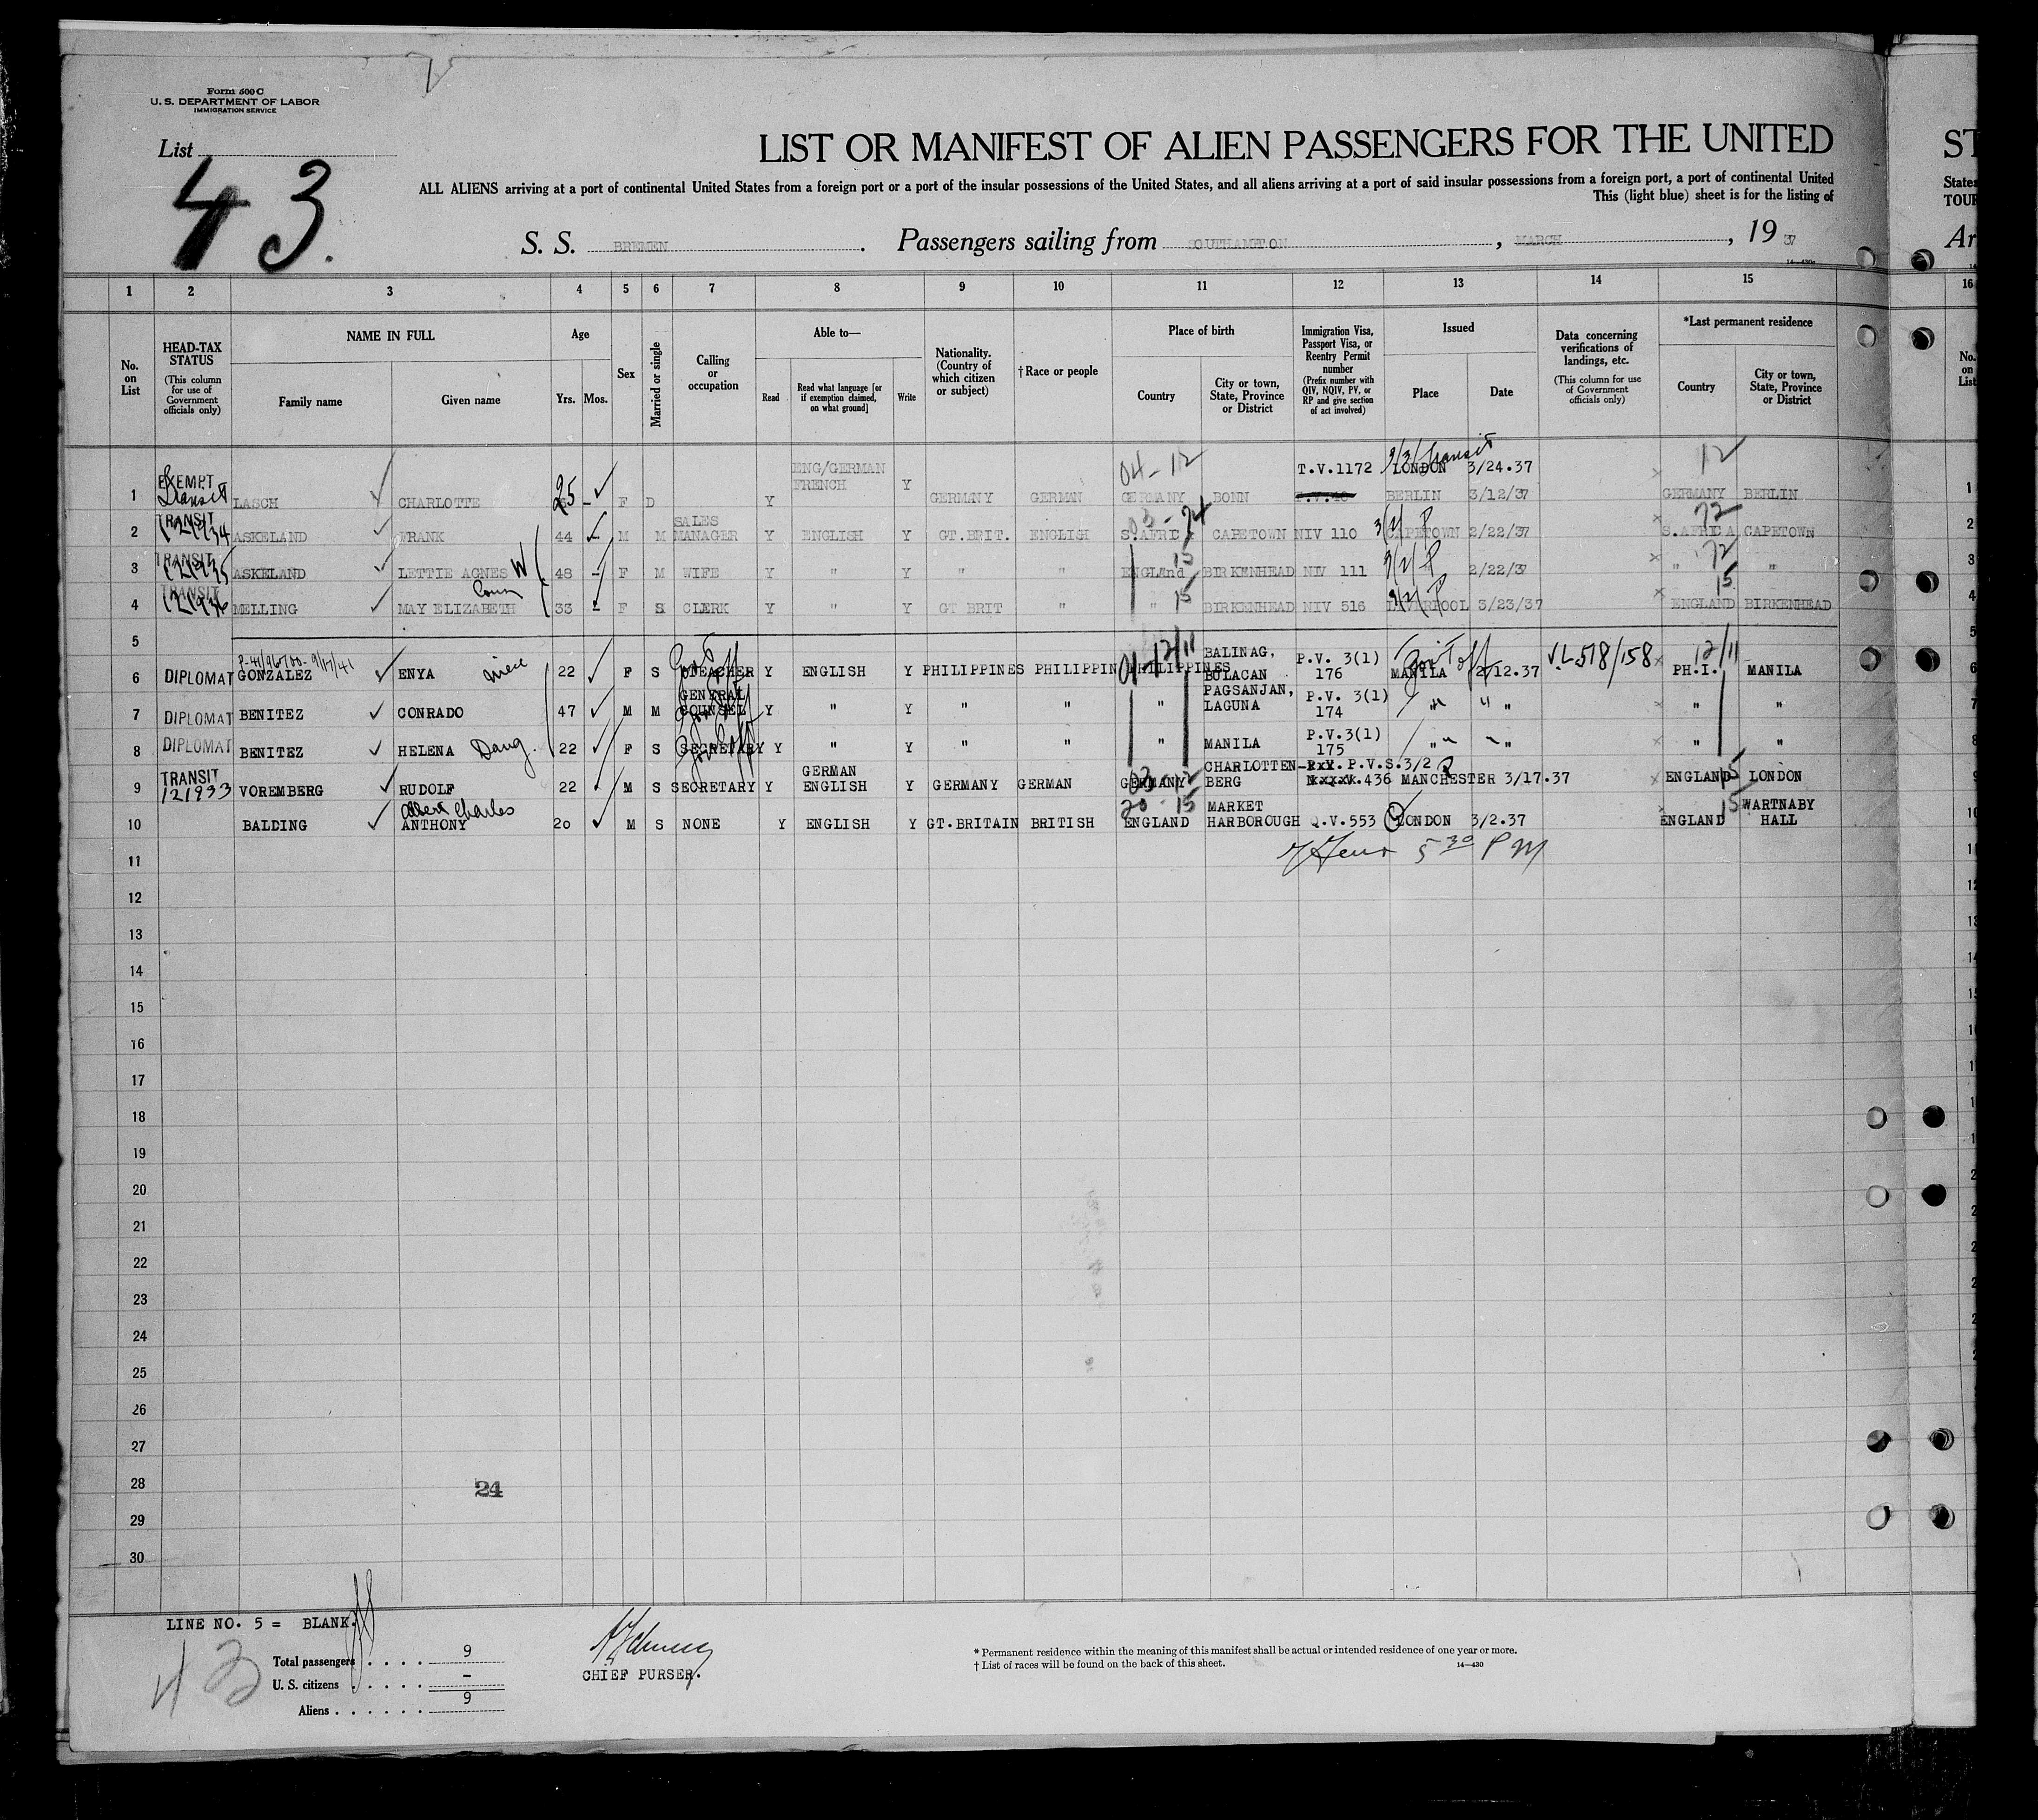 Form 500 C
U. S. DEPARTMENT OF LABOR
IMMIGRATION SERVICE
List
43.
LIST OR MANIFEST OF ALIEN PASSENGERS FOR THE UNITED
ST
ALL ALIENS arriving at a port of continental United States from a foreign port or a port of the insular possessions of the United States, and all aliens arriving at a port of said insular possessions from a foreign port, a port of continental United
States
This (light blue) sheet is for the listing of
TOUR
S. S. BREMEN. Passengers sailing from SOUTHAMPTON, MARCH, 19 37
Ar
14—430
1 2 3 4 5 6 7 8 9 10 11 12 13 14 15 16
No. on List
HEAD-TAX STATUS (This column for use of Government officials only)
NAME IN FULL
Family name Given name
Age
Yrs. Mos.
Sex
Married or single
Calling or occupation
Able to—
Read Read what language [or if exemption claimed, on what ground] Write
Nationality. (Country of which citizen or subject)
† Race or people
Place of birth
Country City or town, State, Province or District
Immigration Visa, Passport Visa, or Reentry Permit number (Prefix number with QIV, NQIV, PV, or RP and give section of act involved)
Issued
Place Date
Data concerning verifications of landings, etc. (This column for use of Government officials only)
*Last permanent residence
Country City or town, State, Province or District
No. on List
1 EXEMPT Transit LASCH CHARLOTTE 25 - F D Y ENG/GERMAN FRENCH Y GERMANY GERMAN 04-12 GERMANY BONN T.V.1172 3/3/ transit LONDON 3/24.37 BERLIN 3/12/37 12 GERMANY BERLIN 1
2 TRANSIT 121934 ASKELAND FRANK 44 - M M SALES MANAGER Y ENGLISH Y GT.BRIT. ENGLISH 03-74 S.AFRICA CAPETOWN NIV 110 3/2/ P CAPETOWN 2/22/37 72 S.AFRICA CAPETOWN 2
3 TRANSIT 121935 ASKELAND LETTIE AGNES W 48 - F M WIFE Y " Y " " 15 ENGLAnd BIRKENHEAD NIV 111 3/2/ P 2/22/37 72 " " 3
4 TRANSIT 121936 MELLING MAY ELIZABETH Cousn 33 - F S CLERK Y " Y GT BRIT " 15 " BIRKENHEAD NIV 516 3/2/ P LIVERPOOL 3/23/37 15 ENGLAND BIRKENHEAD 4
5 5
6 DIPLOMAT P-41/96700-9/17/41 GONZALEZ ENYA niece 22 F S TEACHER Y ENGLISH Y PHILIPPINES PHILIPPIN 01-12/11 PHILIPPINES BALINAG, BULACAN P.V. 3(1) 176 Gov't off MANILA 2/12.37 V.L.518/158 12/11 PH.I. MANILA 6
7 DIPLOMAT BENITEZ CONRADO 47 M M GENERAL COUNSEL Y " Y " " " PAGSANJAN, LAGUNA P.V. 3(1) 174 " " " " " 7
8 DIPLOMAT BENITEZ HELENA Daug. 22 F S SECRETARY Y " Y " " " MANILA P.V.3(1) 175 " " " " 8
9 TRANSIT 121933 VOREMBERG RUDOLF 22 M S SECRETARY Y GERMAN ENGLISH Y GERMANY GERMAN 03-12 GERMANY CHARLOTTEN-BERG P.V.S.3/2 436 MANCHESTER 3/17.37 15 ENGLAND LONDON 9
10 BALDING Albert Charles ANTHONY 20 M S NONE Y ENGLISH Y GT.BRITAIN BRITISH 20-15 ENGLAND MARKET HARBOROUGH Q.V.553 LONDON 3/2.37 15 ENGLAND WARTNABY HALL 10
11 5 30 PM
12
13
14
15
16
17
18
19
20
21
22
23
24
25
26
27
28 24
29
30
LINE NO. 5 = BLANK.
43
Total passengers 9
U. S. citizens -
Aliens 9
CHIEF PURSER.
* Permanent residence within the meaning of this manifest shall be actual or intended residence of one year or more.
† List of races will be found on the back of this sheet.
14—430